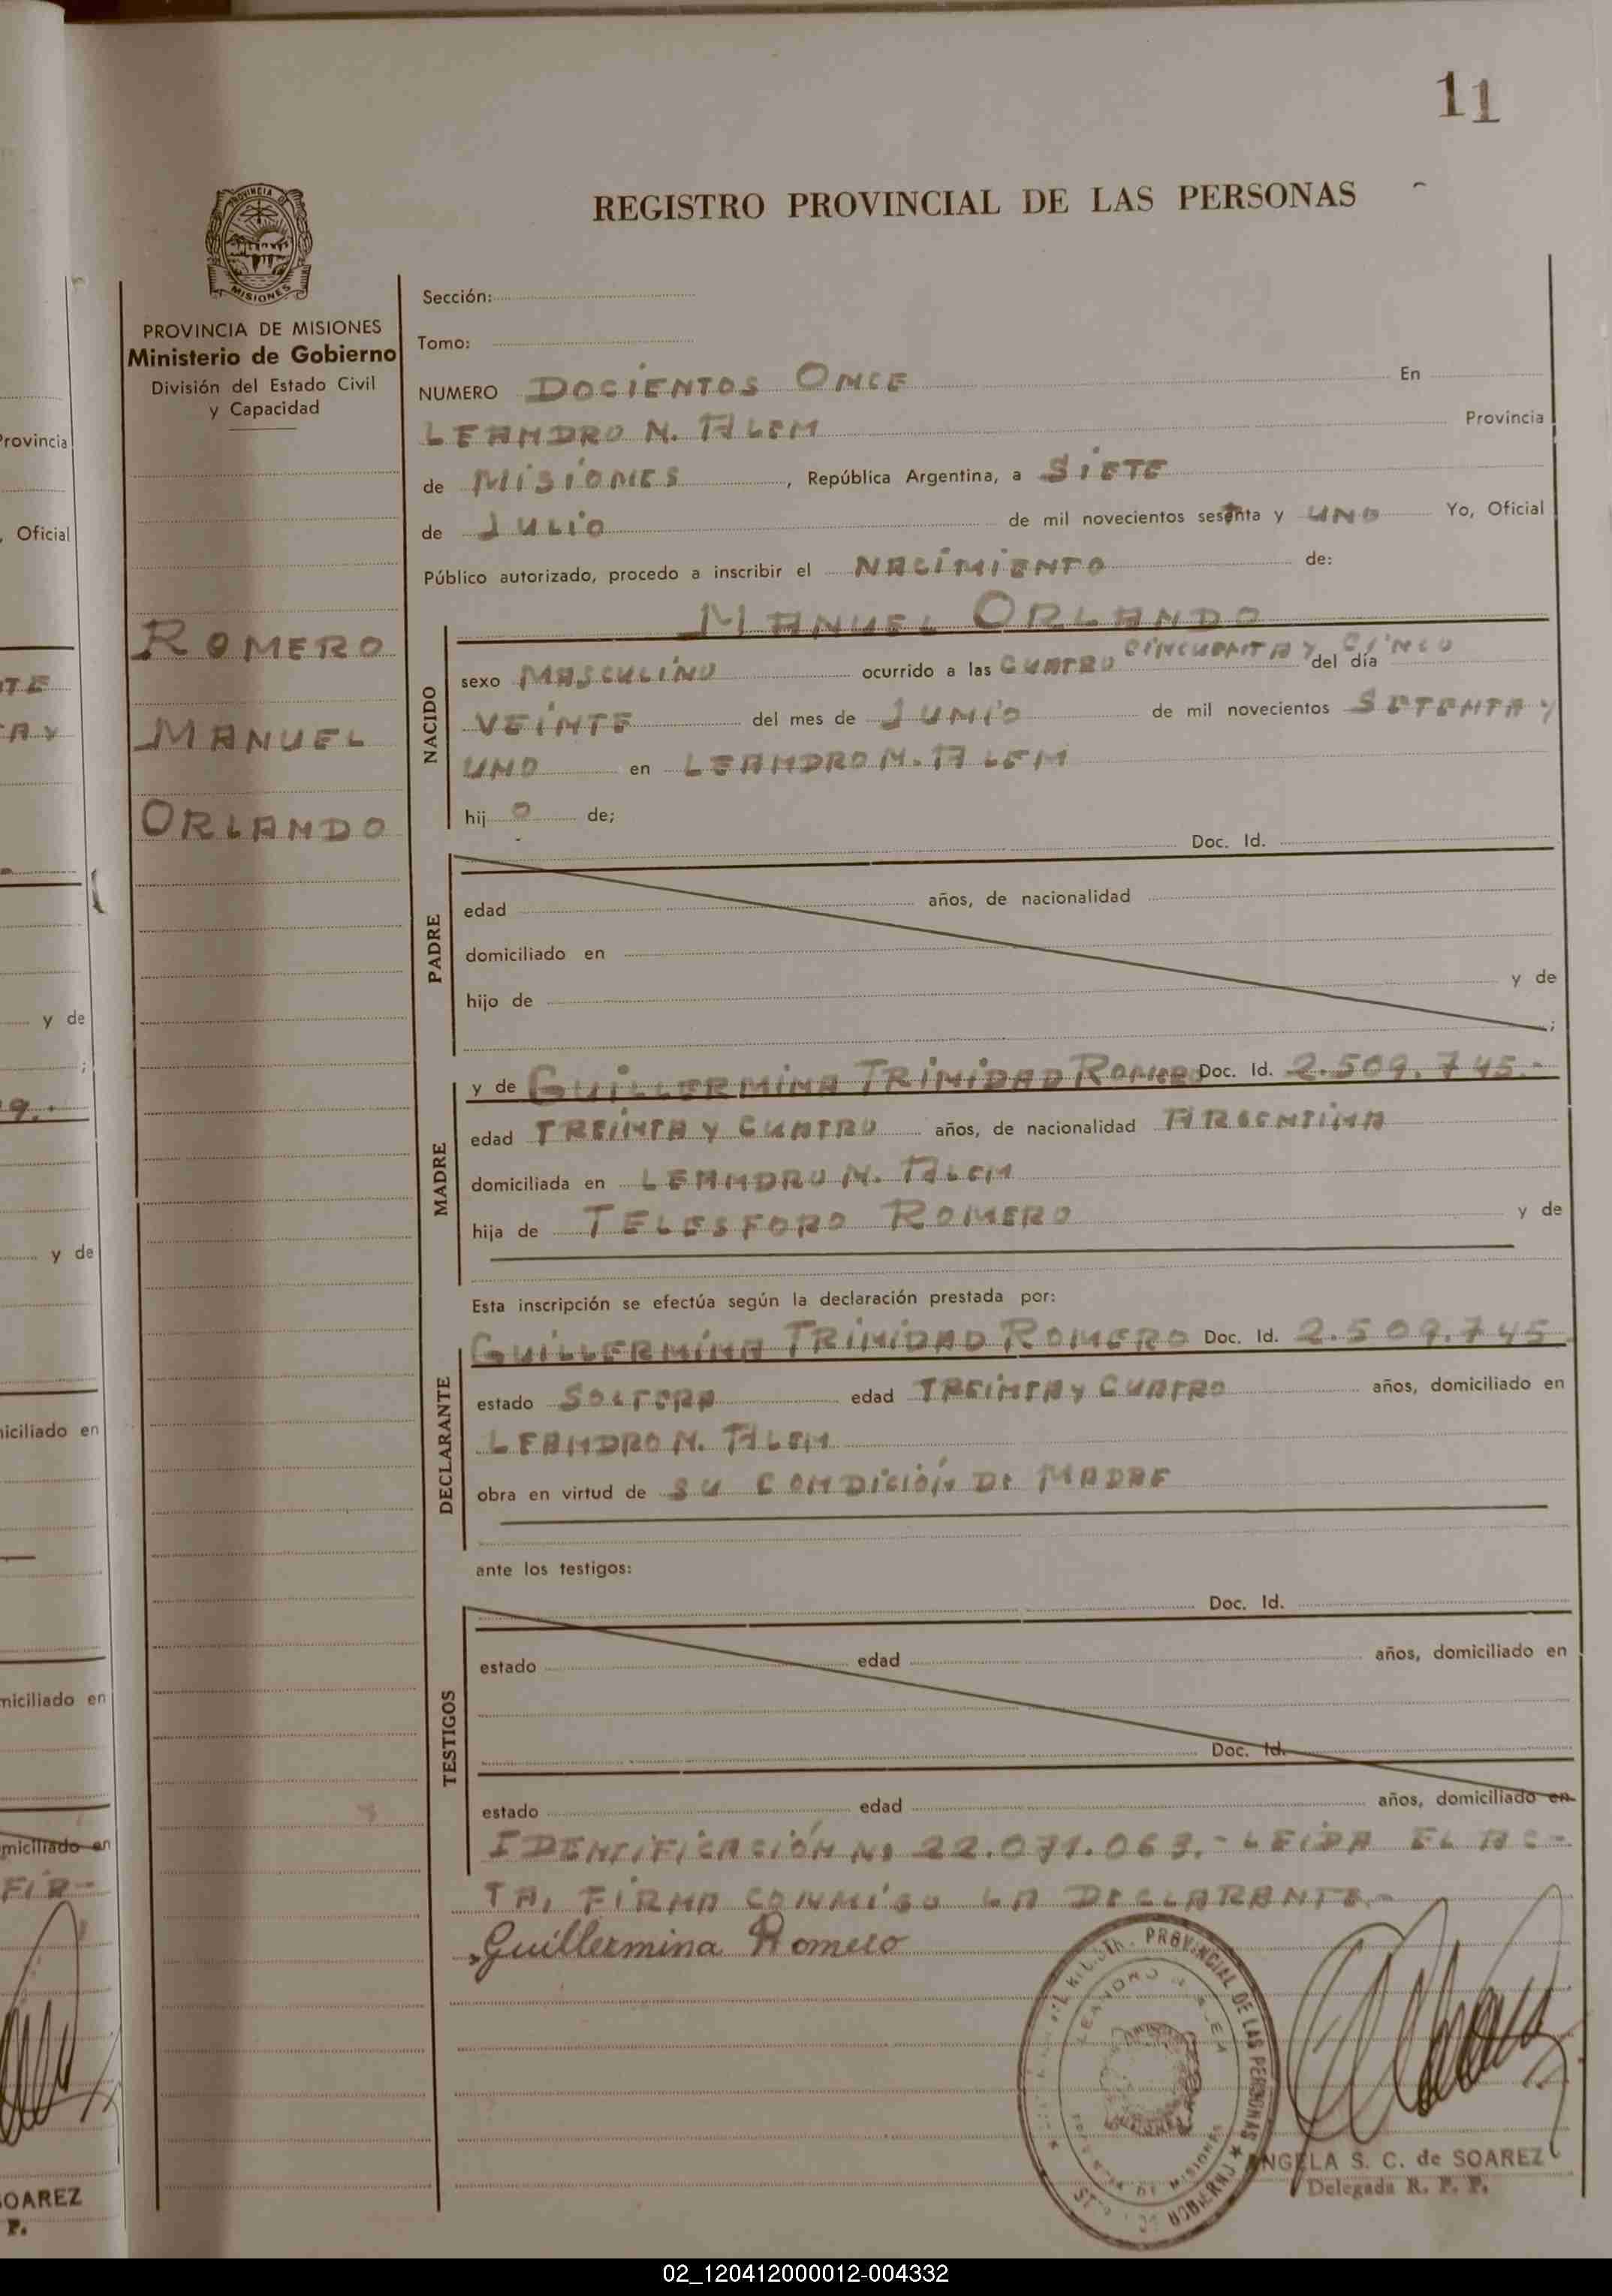 11
REGISTRO PROVINCIAL DE LAS PERSONAS
PROVINCIA DE MISIONES
Ministerio de Gobierno
División del Estado Civil
y Capacidad
ROMERO
MANUEL
ORLANDO
Sección:
Tomo:
NUMERO DOCIENTOS ONCE En
LEANDRO N. ALEM Provincia
de MISIONES, República Argentina, a SIETE
de JULIO de mil novecientos sesenta y UNO Yo, Oficial
Público autorizado, procedo a inscribir el NACIMIENTO de:
MANUEL ORLANDO
NACIDO
sexo MASCULINO ocurrido a las CUATRO CINCUENTA Y CINCO del día
VEINTE del mes de JUNIO de mil novecientos SETENTA Y
UNO en LEANDRO N. ALEM
hij O de;
PADRE
Doc. Id.
edad años, de nacionalidad
domiciliado en
hijo de y de
;
MADRE
y de GUILLERMINA TRINIDAD ROMERO Doc. Id. 2.509.745.-
edad TREINTA Y CUATRO años, de nacionalidad ARGENTINA
domiciliada en LEANDRO N. ALEM
hija de TELESFORO ROMERO y de
Esta inscripción se efectúa según la declaración prestada por:
DECLARANTE
GUILLERMINA TRINIDAD ROMERO Doc. Id. 2.509.745
estado SOLTERA edad TREINTA Y CUATRO años, domiciliado en
LEANDRO N. ALEM
obra en virtud de SU CONDICIÓN DE MADRE
ante los testigos:
TESTIGOS
Doc. Id.
estado edad años, domiciliado en
Doc. Id.
estado edad años, domiciliado en
IDENTIFICACIÓN No 22.071.063.- LEIDA EL AC-
TA, FIRMA CONMIGO LA DECLARANTE.-
Guillermina Romero
PROVINCIAL DE LAS PERSONAS
LEANDRO N. ALEM
ANGELA S. C. de SOAREZ
Delegada R. P. P.
Provincia
, Oficial
y de
;
y de
miciliado en
miciliado en
miciliado en
FIR-
SOAREZ
P.
02_120412000012-004332